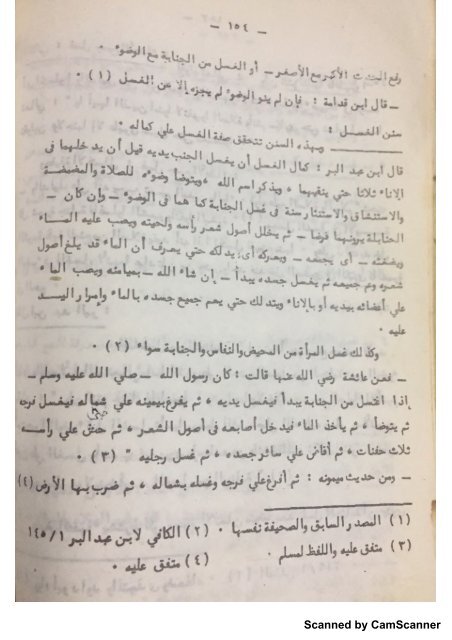 — ١٥٤ —
رفع الحدث الأكبر مع الأصغر — أو الغسل من الجنابة مع الوضوء ٠
— قال ابن قدامة : فإن لم ينو الوضوء لم يجزه إلا عن الغسل (١) ٠
سنن الغسل :
— وبهذه السنن تتحقق صفة الغسل علي كماله ٠
قال ابن عبد البر : كمال الغسل أن يغسل الجنب يديه قبل أن يدخلهما في
الإناء ثلاثا حتي ينقيهما ، ويذكر اسم الله ، ويتوضأ وضوءه للصلاة والمضمضة
والاستنشاق والاستنثار سنة في غسل الجنابة كما هما في الوضوء — وإن كان —
الحنابلة يرونها فرضا — ثم يخلل أصول شعر رأسه ولحيته ويصب عليه الماء
ويضغثه — أى يجمعه — ويعركه أى يدلكه حتي يعرف أن الماء قد بلغ أصول
شعره وعم جميعه ثم يغسل جسده يبدأ — إن شاء الله — بميامنه ويصب الماء
علي أعضائه بيديه أو بالإناء ويتدلك حتي يعم جميع جسده بالماء وامرار اليد
عليه ٠
وكذلك غسل المرأة من المحيض والنفاس والجنابة سواء (٢) ٠
— فعن عائشة رضي الله عنها قالت : كان رسول الله — صلي الله عليه وسلم —
إذا اغتسل من الجنابة يبدأ فيغسل يديه ، ثم يفرغ بيمينه علي شماله فيغسل فرجه
ثم يتوضأ ، ثم يأخذ الماء فيدخل أصابعه في أصول الشعر ، ثم حفن علي رأسه
ثلاث حفنات ، ثم أفاض علي سائر جسده ، ثم غسل رجليه " (٣) ٠
— ومن حديث ميمونه : ثم أفرغ علي فرجه وغسله بشماله ، ثم ضرب بها الأرض (٤)
(١) المصدر السابق والصحيفة نفسها ٠ (٢) الكافي لابن عبد البر ١/١٤٥
(٣) متفق عليه واللفظ لمسلم ٠ (٤) متفق عليه ٠
Scanned by CamScanner